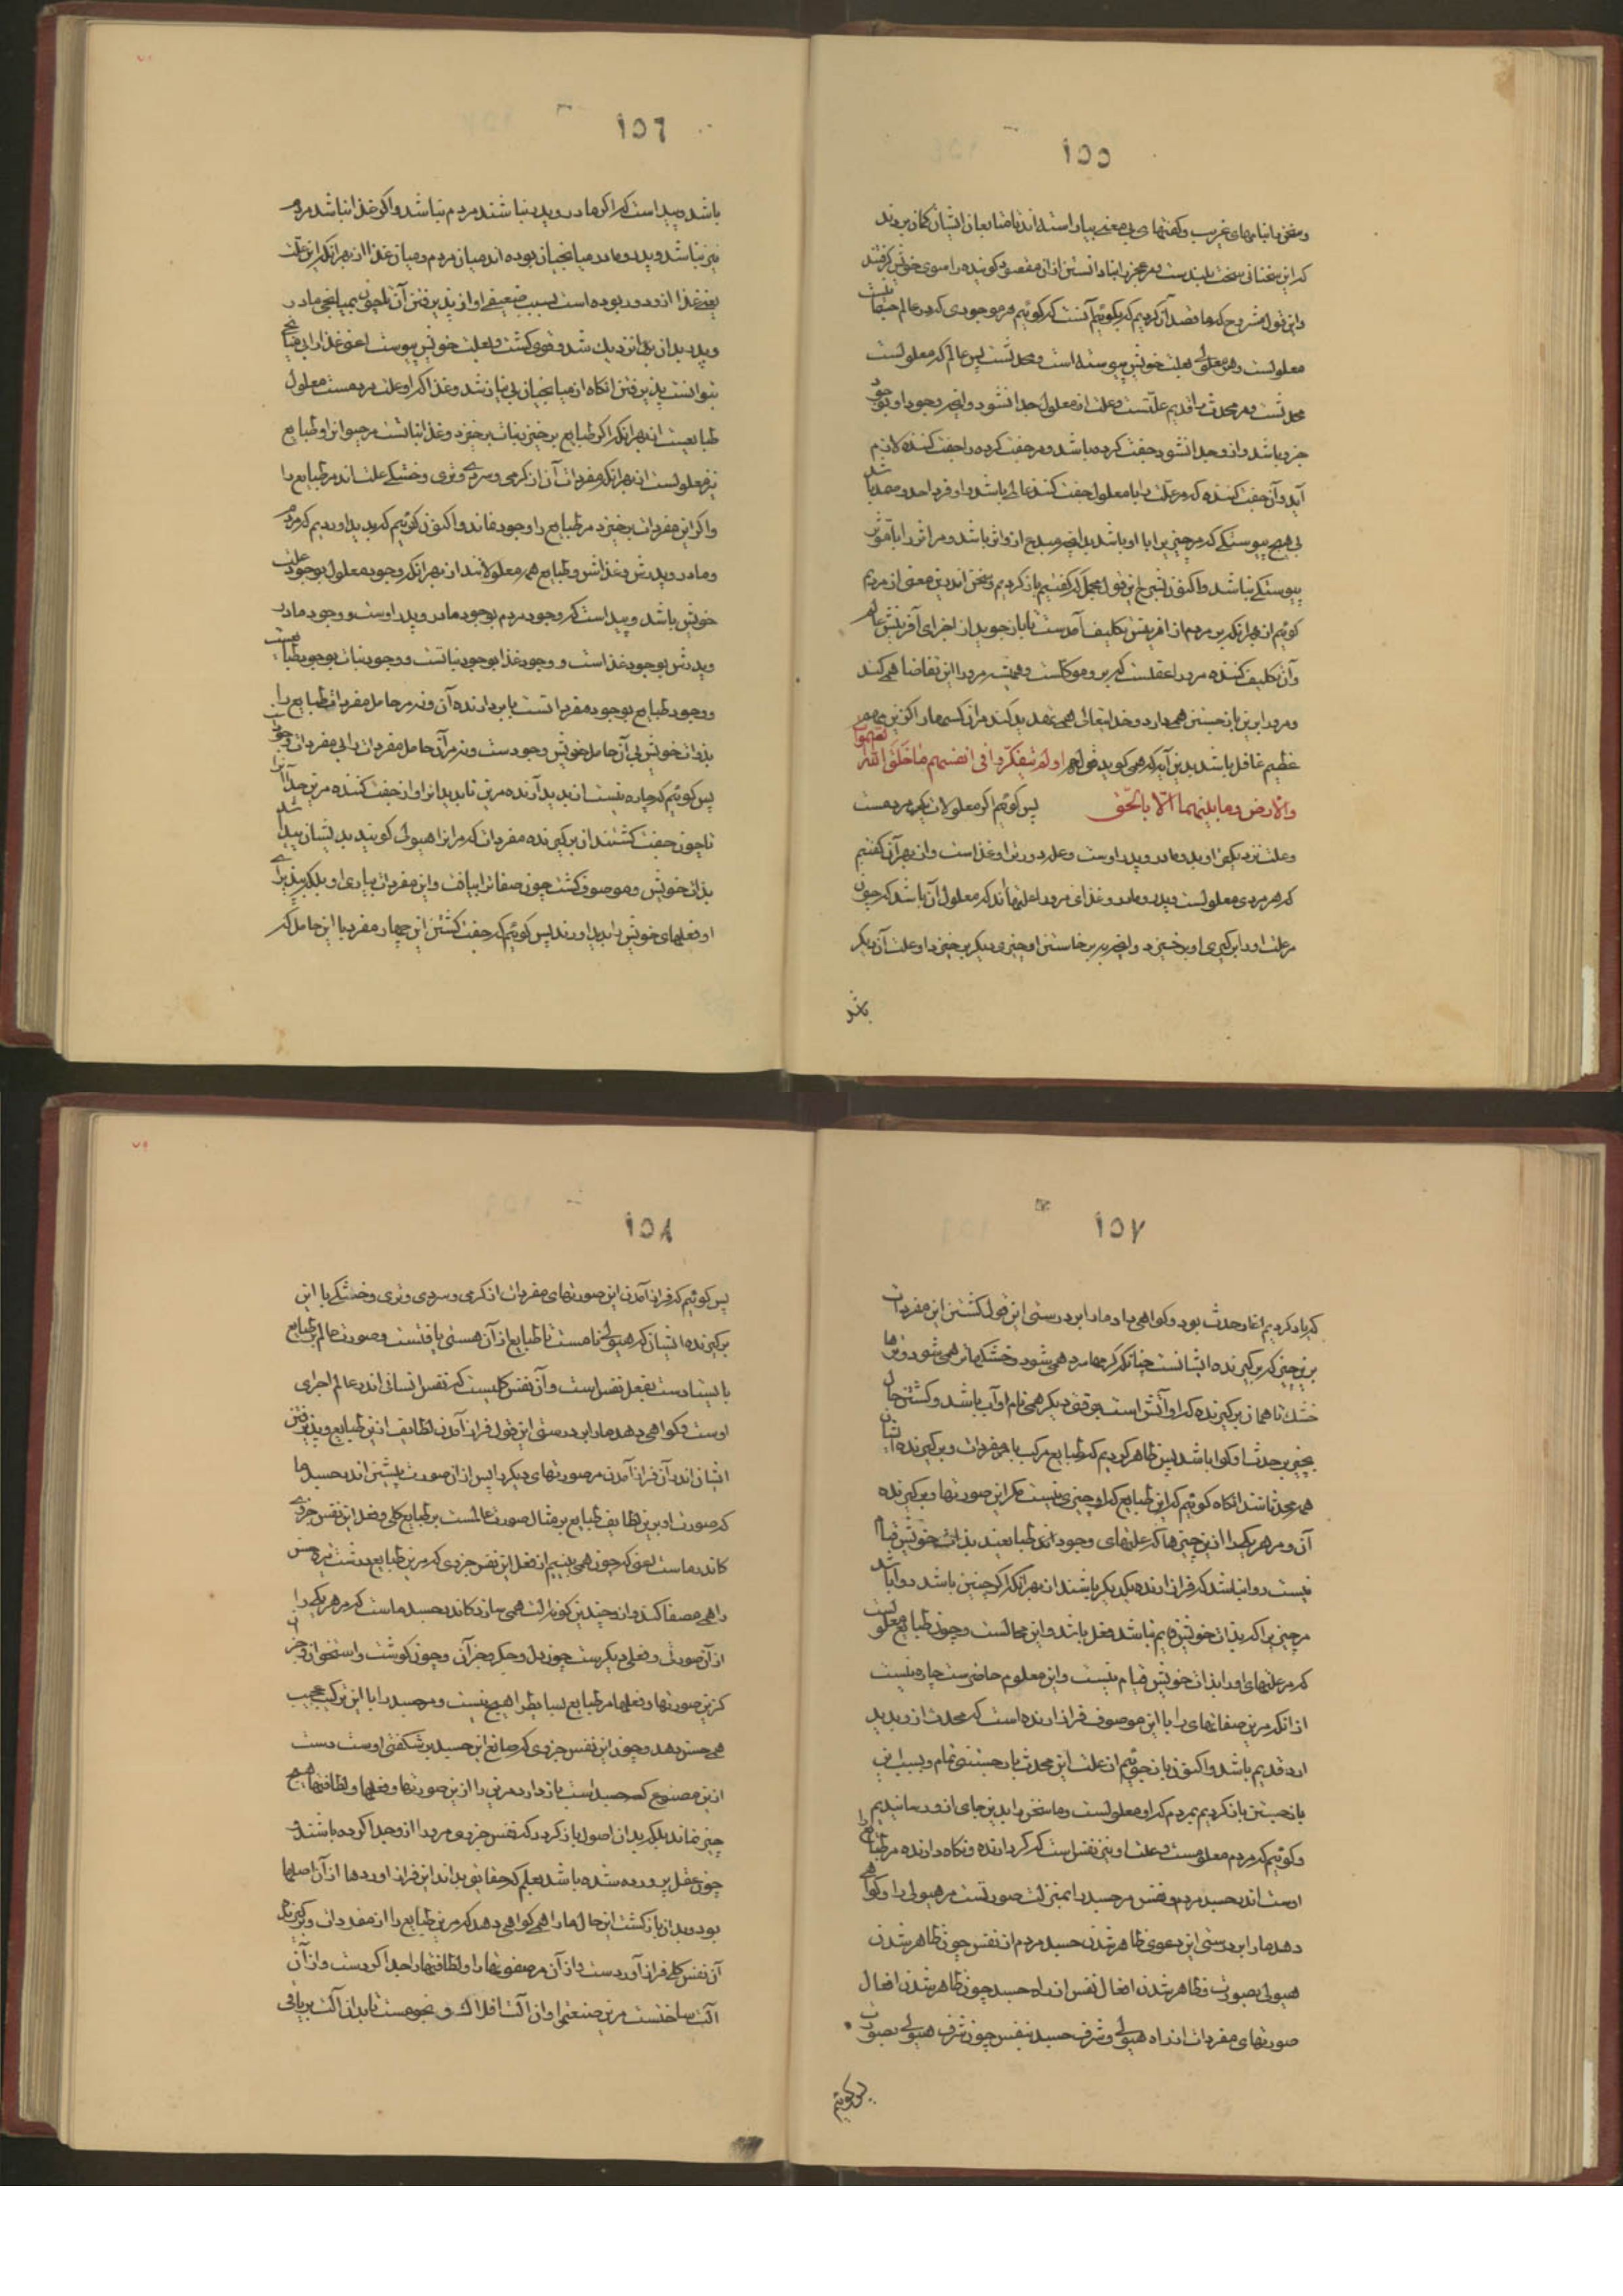 ١٥٥
و سخن با نبایهای غریب و کفتهای بی معنی بیاراسته اند تا متابعان ایشان کمان بردند
که این سخنانی سخت بلندست و مر عجز را بنادانستن از آن مقصود کوینده را سوی خویش کرفتند
و این قول مشروح که ما قصد آن کردیم که بکوئیم آنست که کوئیم هر موجودی که در عالم جفتست
معلولست و هر معلولی بعلت خویش پیوسته است و محدثست پس عالم که معلولست
محدثست و هر محدث را قدیم علتست و علت از معلول جدا نشود و انچه وجود او بوجود
جزو باشد و ازو جدا نشود جفت کرده باشد و مر جفت کرده را جفت کننده لازم
آید و آن جفت کننده که مر علت را با معلول جفت کند عالی باشد و او فرد احد و صمد باشد
بی هیچ پیوستکی که مر چیزیرا با او باشد بدانچه مبدع از و اثر باشد و مر اثر را با مؤثر
پیوستکی نباشد و اکنون بشرح این قول مجمل که کفتیم باز کردیم و سخن اندرین معنی از مردم
کوئیم از بهر آنکه بر مردم از آفرینش تکلیف آمدست تا باز جوید از اجزای آفرینش عالم
و آن تکلیف کننده مرورا عقلست که برو موکلست و همیشه مرورا این تقاضا همی کند
و مرورا برین باز جستن همی دارد و خدایتعالی همی تهدید کند مر آن کسها را کزین
عظیم غافل باشد بدین آیه که همی کوید قوله اولم یتفکروا فی انفسهم ما خلق الله السموات
والارض وما بینهما الا بالحق پس کوئیم اکر معلولات یکی مردمست
و علت نزدیکتر او پدر و مادر و پدر اوست و علت دورتر او غذاست و از بهر آن کفتیم
که هر مردی معلولست و پدر و مادر و غذای مرورا علتهااند که معلول آن باشد که چون
مر علت اورا بر کیری او برخیزد و انچه ببرخاستن او چیزی دیکر برخیزد او علت آن دیکر
باشد
١٥٦
باشد و پیداست که اکر مادر و پدر نباشند مردم نباشد و اکر غذا نباشد مردم
نیز نباشد و پدر و مادر میانجیان بوده اند میان مردم و میان غذا از بهر آنکه این علت
یعنی غذا ازو دور بوده است بسبب ضعیفی او از پذیرفتن آن تا چون بمیانجی مادر
و پدر بدان پذیرا نزدیک شد و قوی کشت و بعلت خویش پیوست اعنی غذا را بی میانجی
بتوانست پذیرفتن انکاه از میانجیان بی نیاز شد و غذا اکر او علت مردمست معلول
طبایعست از بهر آنکه اکر طبایع برخیزد نبات برخیزد و غذا نباتست مر حیوانرا و طبایع
نیز معلولست از بهر آنکه مفردات آن از کرمی و سردی و تری و خشکی علت اند مر طبایع را
و اکر این مفردات برخیزد مر طبایع را وجود نماند و اکنون کوئیم که پدید آوردیم که مردم
و مادر و پدرش و غذااش و طبایع همه معلولانند از بهر آنکه وجود معلول بوجود علت
خویش باشد و پیداست که وجود مردم بوجود مادر و پدر اوست و وجود مادر
و پدرش بوجود غذاست و وجود غذا بوجود نباتست و وجود نبات بوجود طبایعست
و وجود طبایع بوجود مفرداتست با بردارنده آن و نه مر حامل مفردات طبایع را
بذات خویش بی آن حامل خویش وجودست و نه مر آن حامل مفردات را بی مفردات وجودست
پس کوئیم که چاره نیست از پدید آرنده مرین تا پدید آنرا و از جفت کننده مرین جدا آنرا
تا چون جفت کشتند از برکیرنده مفردات که مر انرا هیولی کویند بدیشان پیدا شد
بذات خویش و موصوف کشت چون صفات را بیافت و این مفردات بیاری او بلکه بپذیرای
او فعلهای خویش را پدید آورند پس کوئیم که جفت کشتن این چهار مفرد با این حامل که
١٥٧
که یاد کردیم آغاز حدث بود و کواهی داد مارا بر درستی این قول کشتن این مفردات
برین چیز که برکیرنده ایشانست چنانکه کرمها سرد همی شود و خشکیها تر همی شود و ترها
خشک تا هم آن برکیرنده که او آتش است بوقتی دیکر همی نام او آب باشد و کشتن حال
بچیزی بر حدث او کوا باشد پس ظاهر کردیم که طبایع مرکب با مفردات و برکیرنده ایشان
همه محدث باشند انکاه کوئیم که این طبایع که او چیزی نیست مکر این صورتها و برکیرنده
آن و مر هر یکیرا ازین چیزها که علتهای وجود اند طبایعند بذات خویش قیام
نیست روا نباشد که فراز آرنده یکدیکر باشند از بهر آنکه اکر چنین باشد روا باشد
مر چیزیرا که بذات خویش قایم نباشد فعل باشد و این محالست و چون طبایع معلولست
که مر علتهای اورا بذات خویش قیام نیست و این معلوم حاضرست چاره نیست
از آنکه مرین صفاتهای را با این موصوف فراز آرنده است که محدث ازو پدید
آرد قدیم باشد و اکنون باز جوئیم از علت این محدث باز جستنی تمام و بسبب این
باز جستن باز کردیم بمردم که او معلولست و ما سخن را بدین جای ازو رسانیدیم
و کوئیم که مردم معلومست و علت او نیز نفس است که کردارنده و نکاه دارنده مر طبایع را
اوست اندر جسد مردم و نفس مر جسد را بمنزلت صورتست مر هیولی را و کواهی
دهد مارا بر درستی این دعوی ظاهر شدن جسد مردم از نفس چون ظاهر شدن
هیولی بصورت و ظاهر شدن افعال نفس از راه جسد چون ظاهر شدن افعال
صورتهای مفردات از راه هیولی و شرف جسد بنفس چون شرف هیولی بصورت
پس کوئیم
١٥٨
پس کوئیم که فراز آمدن این صورتهای مفردات از کرمی و سردی و تری و خشکی با این
برکیرنده ایشان که هیولی نامست تا طبایع از آن هستی یافتست و صورت عالم بر طبایع
بایستادست بفعل نفس است و آن نفس کلیست که نفس انسانی اندر عالم اجزای
اوست و کواهی دهد مارا بر درستی این قول فراز آمدن لطایف ازین طبایع و پذیرفتن
ایشان اندر آن فراز آمدن مر صورتهای دیکر را پس از آن صورت پیشین اندر جسد ما
که صورت او برین لطایف طبایع بر مثال صورت عالمست بر طبایع کلی و فعل این نفس جزوی
کاندر ماست یعنی که چون همی بینیم از فعل این نفس جزوی که مرین طبایع درشت تیره جنس
را همی مصفا کند و از و چندین کونه آلت همی سازد کاندر جسد ماست که مر هر یکیرا
از آن صورت و فعلی دیکرست چون دل و جکر و جز آن و چون کوشت و استخوان و جز
کزین صورتها و فعلها مر طبایع بسایط را هیچ نیست و مر جسد را با این ترکیب عجیب
همی حس دهد و چون این نفس جزوی که صانع این جسد پر شکفتی اوست دست
ازین مصنوع که جسد است باز دارد مرین را ازین صورتها و فعلها و لطافتها هیچ
چیز نماند بلکه بدان اصول باز کردد که نفس جزوی مرورا ازو جدا کرده باشد و
چون عقل پرورده شده باشد بعلم که حقایق بداند این فراز آوردها از آن اصلها
بود و بدان باز کشت این حال مارا همی کواهی دهد که مرین طبایع را از مفردات و برکیرنده
آن نفس کلی فراز آوردست و از آن مر صفوتها را و لطافتها را جدا کردست و از آن
آلت ساختست مرین صنعتها و از آن آلت افلاک و نجومست تا بدان آلت بریافی